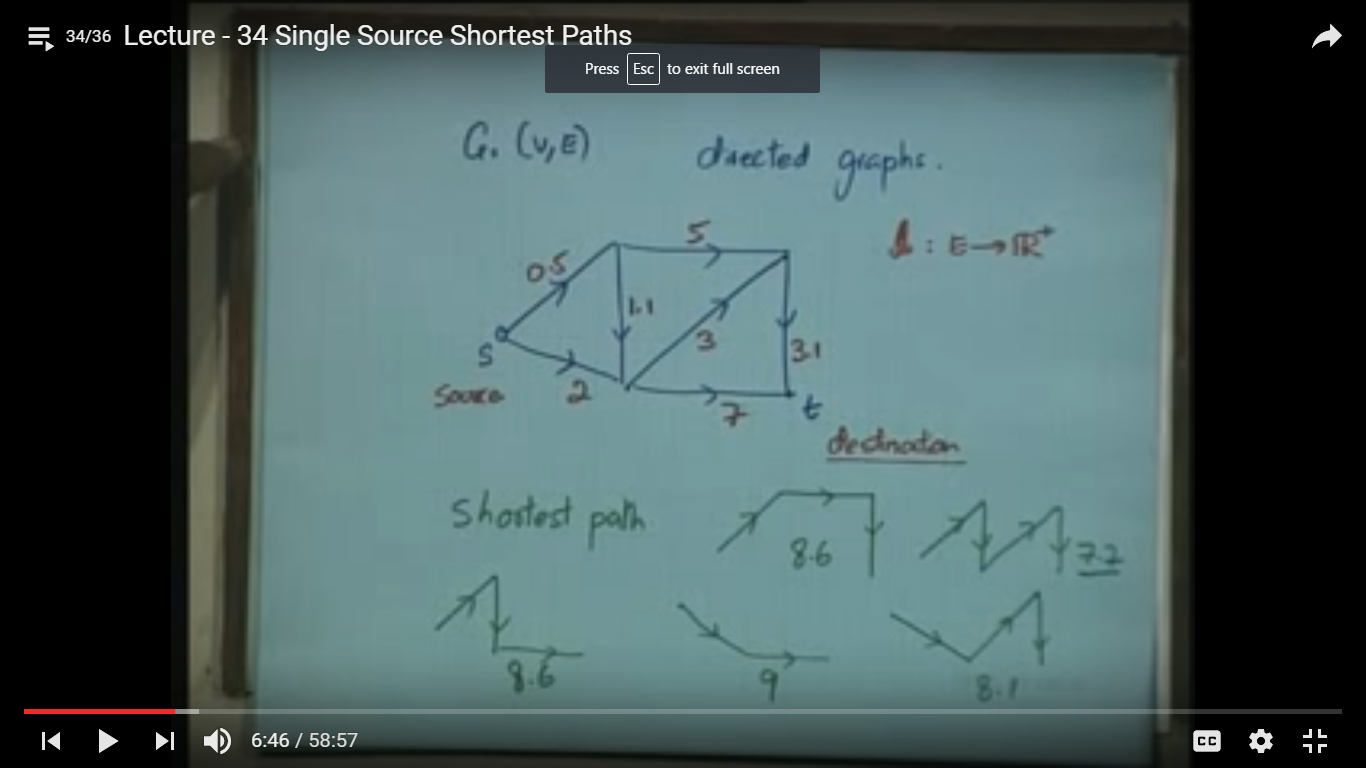 34/36 Lecture - 34 Single Source Shortest Paths
Press Esc to exit full screen
G. (V,E) directed graphs.
l : E→R⁺
5
0.5
1.1
3
3.1
S
source
2
7
t
destination
Shortest path
8.6
7.7
8.6
9
8.1
6:46 / 58:57
CC